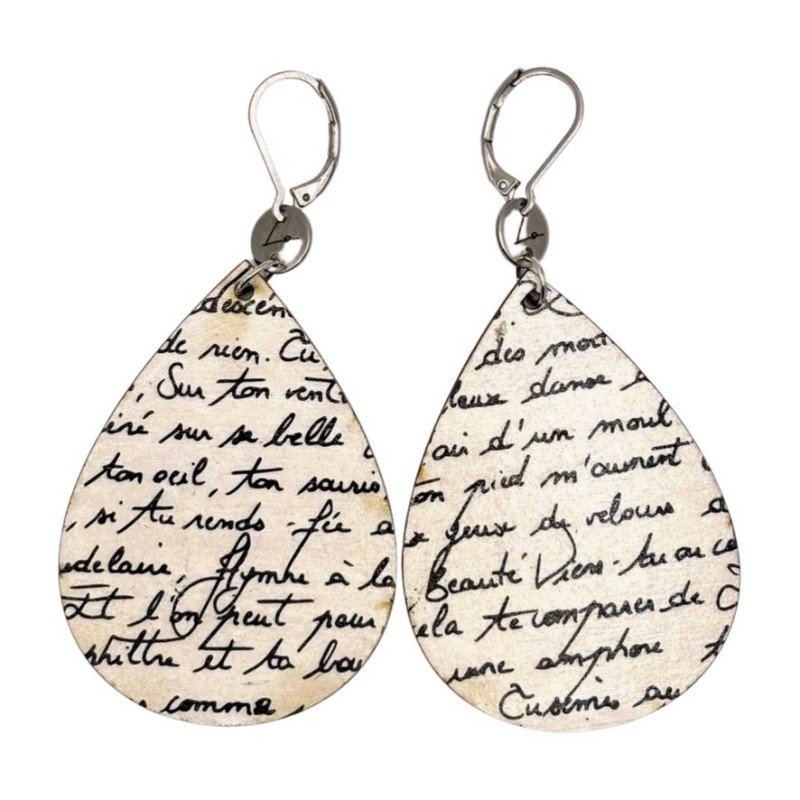 descen
de rien. Tu
, Sur ton vent
iré sur sa belle
ton oeil, ton souris
, si tu rends - fée a
udelaire, Hymne à la
Et l'on peut pour
philtre et ta bou
comme
des mort
leux danse
air d'un moul
ton pied m'ouvrent
yeux de velours
Beauté Viens-tu au co
ela te comparer de
une amphore
Tu semes au